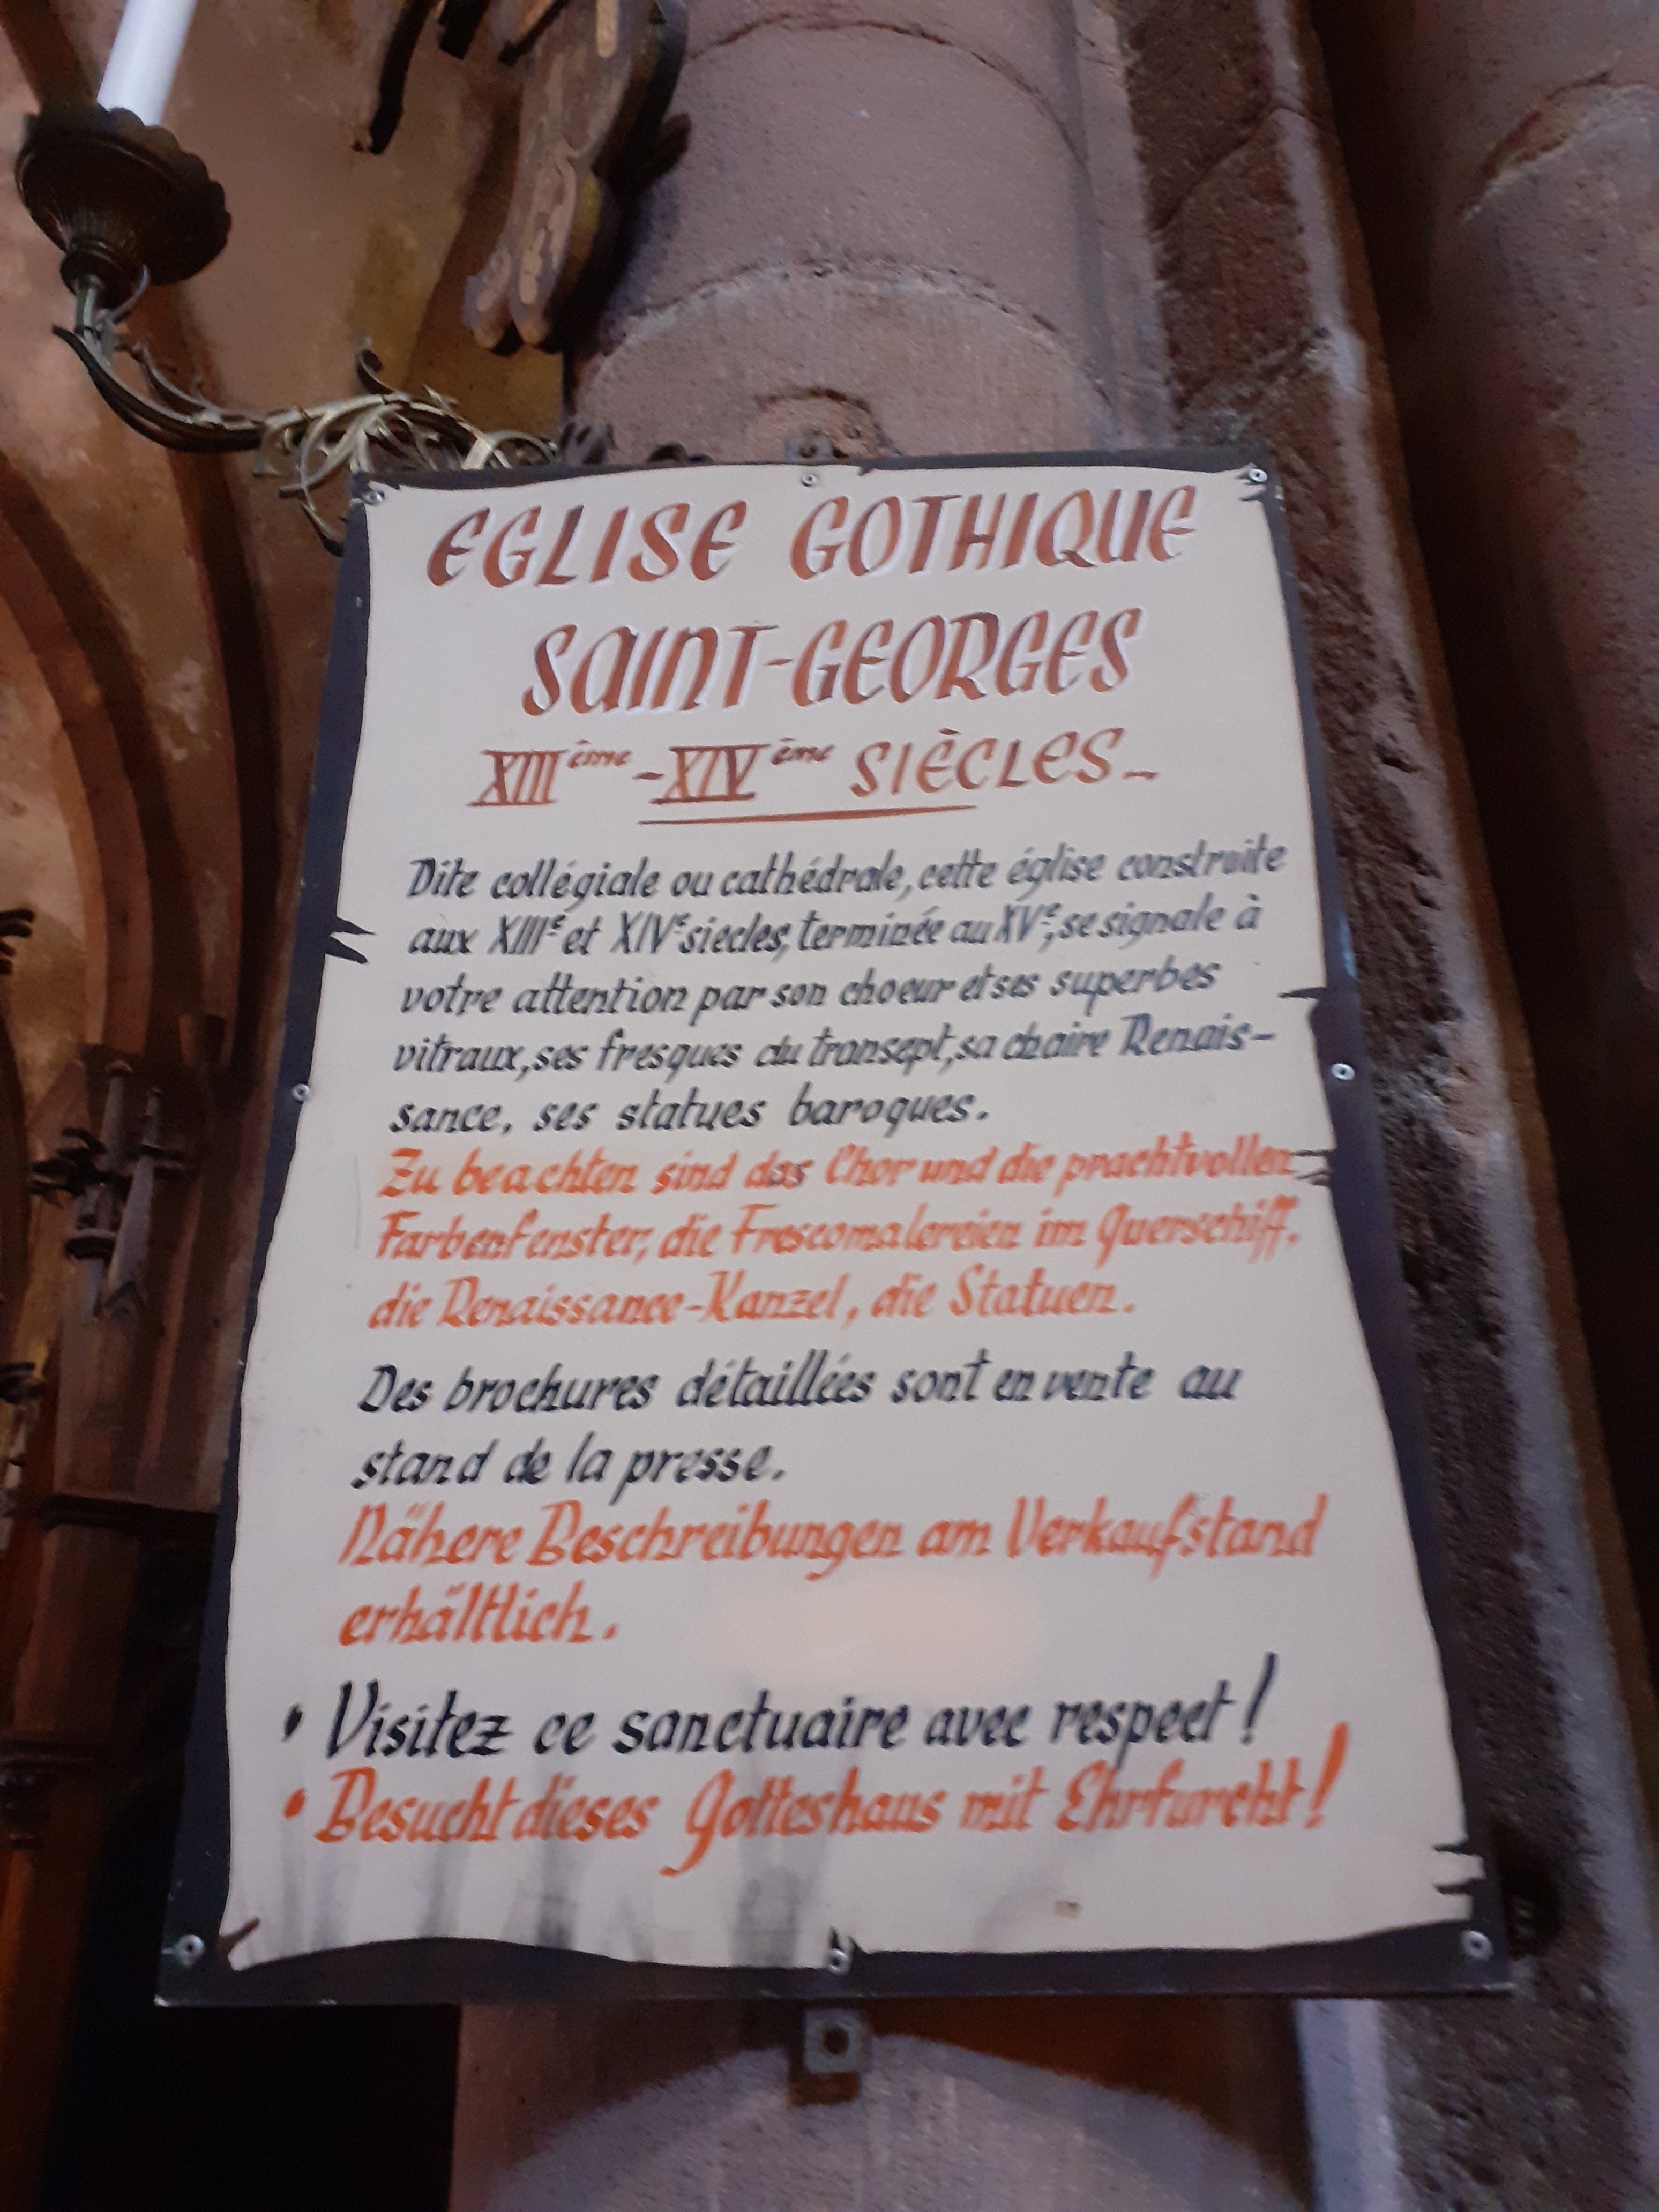 EGLISE GOTHIQUE
SAINT-GEORGES
XIIIème-XIVème SIÈCLES-
Dite collégiale ou cathédrale, cette église construite
aux XIIIe et XIVe siecles, terminée au XVe, se signale à
votre attention par son choeur et ses superbes
vitraux, ses fresques du transept, sa chaire Renais-
sance, ses statues baroques.
Zu beachten sind das Chor und die prachtvollen
Farbenfenster, die Frescomalereien im Querschiff,
die Renaissance-Kanzel, die Statuen.
Des brochures détaillées sont en vente au
stand de la presse.
Nähere Beschreibungen am Verkaufstand
erhältlich.
• Visitez ce sanctuaire avec respect!
• Besucht dieses Gotteshaus mit Ehrfurcht!